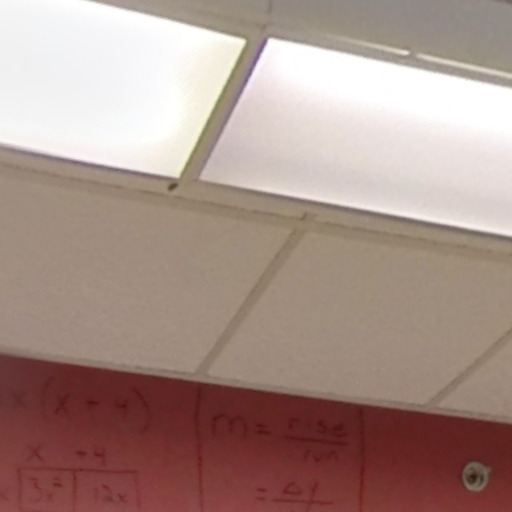 x(x + 4)
x +4
x 3x² 12x
m = rise/run
= Δy